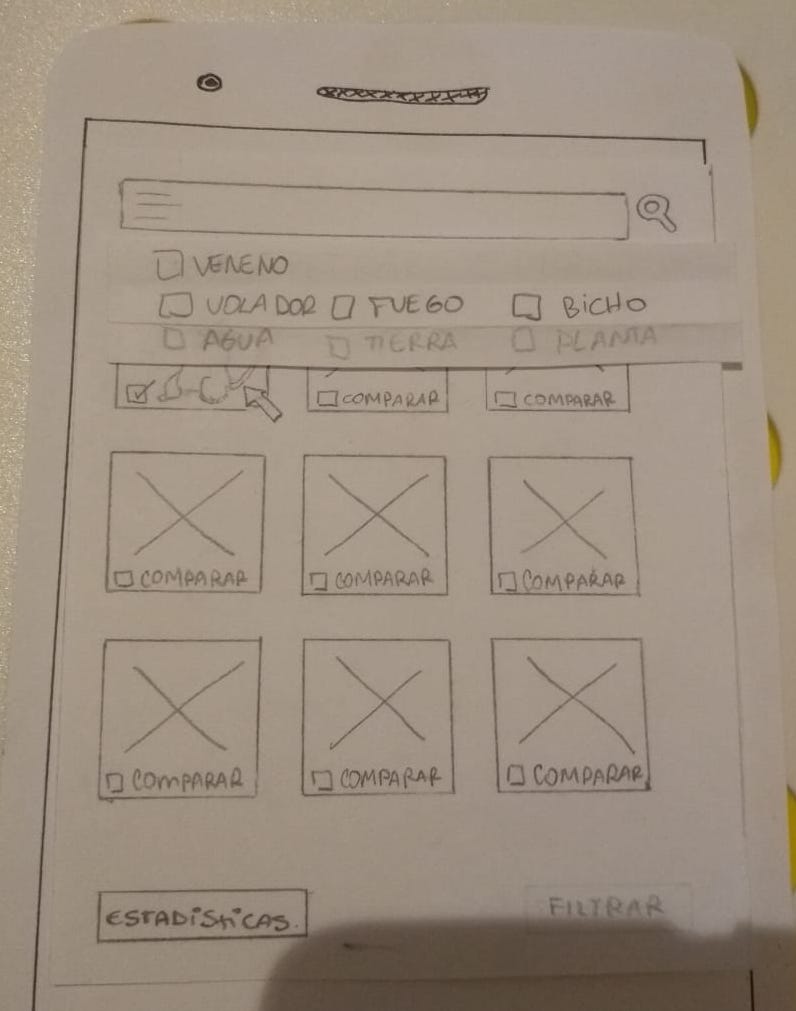 VENENO
VOLADOR FUEGO BICHO
AGUA TIERRA PLANTA
COMPARAR COMPARAR
COMPARAR COMPARAR COMPARAR
COMPARAR COMPARAR COMPARAR
ESTADISTICAS. FILTRAR